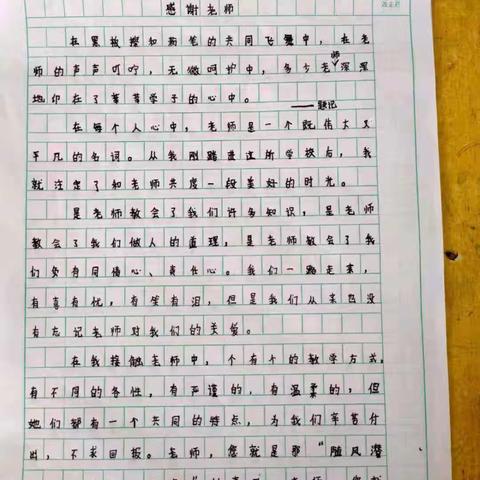 感谢老师
在黑板擦和粉笔的共同飞舞中，在老
师的声声叮咛，无微呵护中，多少老师深深
地印在了莘莘学子的心中。
——题记
在每个人心中，老师是一个既伟大又
平凡的名词。从我刚踏进这所学校后，我
就注定了和老师共度一段美好的时光。
是老师教会了我们许多知识，是老师
教会了我们做人的道理，是老师教会了我
们负有同情心、责任心。我们一路走来，
有喜有忧，有笑有泪，但是我们从来也没
有忘记老师对我们的关爱。
在我接触老师中，个有个的教学方式，
有不同的各性，有严谨的，有温柔的，但
她们都有一个共同的特点，为我们辛苦付
出，不求回报。老师，您就是那“随风潜